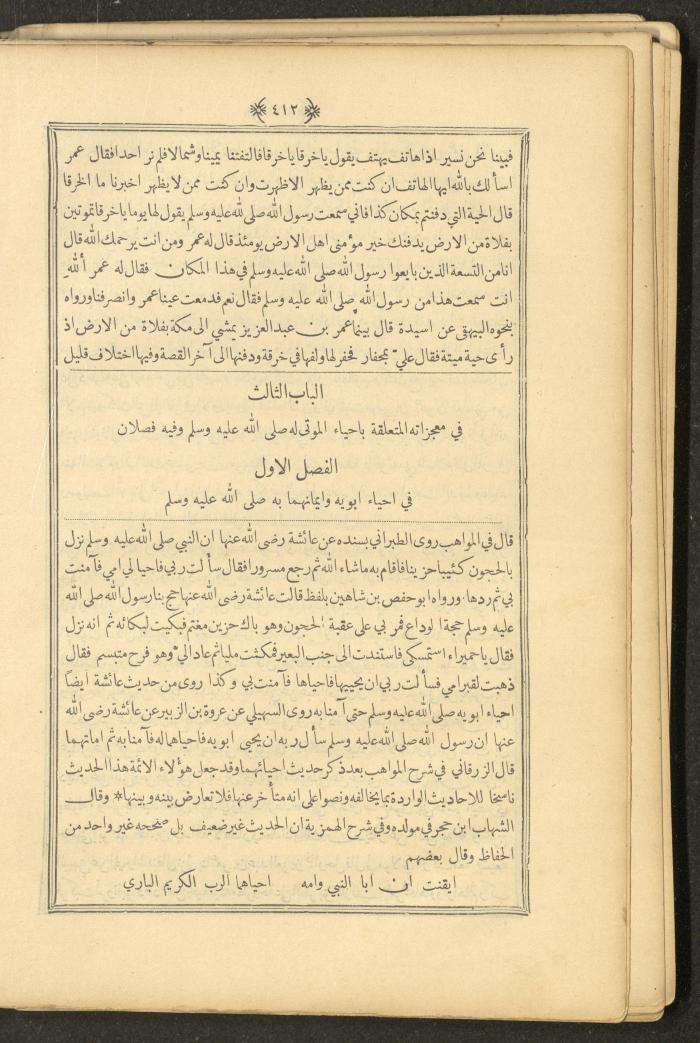 ٤١٢
فبينا نحن نسير اذاهاتف يهتف يقول ياخرقا ياخرقا فالتفتنا يميناوشمالا فلم نر احدا فقال عمر
اسأ لك بالله ايها الهاتف ان كنت ممن يظهر الاظهرت وان كنت ممن لا يظهر اخبرنا ما الخرقا
قال الحية التي دفنتم بمكان كذا فاني سمعت رسول الله صلى الله عليه وسلم يقول لها يوما ياخرقا تموتين
بفلاة من الارض يدفنك خير مؤمنى اهل الارض يومئذ قال له عمر ومن انت يرحمك الله قال
انا من التسعة الذين بايعوا رسول الله صلى الله عليه وسلم في هذا المكان فقال له عمر أالله
انت سمعت هذا من رسول الله صلى الله عليه وسلم فقال نعم فدمعت عينا عمر وانصرفنا ورواه
بنحوه البيهقى عن اسيدة قال بينما عمر بن عبد العزيز يمشي الى مكة بفلاة من الارض اذ
رأى حية ميتة فقال عليّ بمحفار فحفر لها ولفها في خرقة ودفنها الى آخر القصة وفيها اختلاف قليل
الباب الثالث
في معجزاته المتعلقة باحياء الموتى له صلى الله عليه وسلم وفيه فصلان
الفصل الاول
في احياء ابويه وايمانهما به صلى الله عليه وسلم
قال في المواهب روى الطبراني بسنده عن عائشة رضى الله عنها ان النبي صلى الله عليه وسلم نزل
بالحجون كئيبا حزينا فاقام به ماشاء الله ثم رجع مسرورا فقال سأ لت ربي فاحيا لي امي فآمنت
بي ثم ردها. ورواه ابو حفص بن شاهين بلفظ قالت عائشة رضى الله عنها حج بنا رسول الله صلى الله
عليه وسلم حجة الوداع فمر بي على عقبة الحجون وهو باك حزين مغتم فبكيت لبكائه ثم انه نزل
فقال ياحميراء استمسكى فاستندت الى جنب البعير فمكثت مليا ثم عاد اليّ وهو فرح متبسم فقال
ذهبت لقبر امي فسأ لت ربي ان يحييها فاحياها فآمنت بي وكذا روى من حديث عائشة ايضاً
احياء ابويه صلى الله عليه وسلم حتى آ منا به روى السهيلي عن عروة بن الزبير عن عائشة رضى الله
عنها ان رسول الله صلى الله عليه وسلم سأل ربه ان يحيى ابويه فاحياهما له فآمنا به ثم اماتهما
قال الزرقاني في شرح المواهب بعد ذكر حديث احيائهما وقد جعل هؤلاء الائمة هذا الحديث
ناسخا للاحاديث الواردة بما يخالفه ونصوا على انه متأ خر عنها فلا تعارض بينه وبينها* وقال
الشهاب ابن حجر في مولده وفي شرح الهمزية ان الحديث غير ضعيف بل صححه غير واحد من
الحفاظ وقال بعضهم
ايقنت ان ابا النبي وامه احياهما الرب الكريم الباري